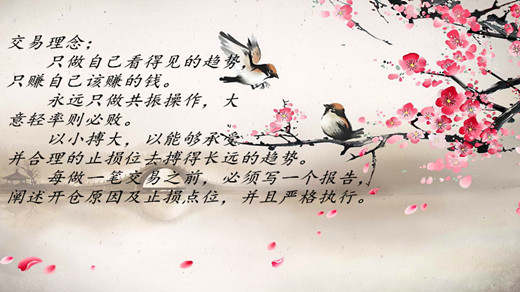 交易理念：
只做自己看得见的趋势
只赚自己该赚的钱。
永远只做共振操作，大
意轻率则必败。
以小搏大，以能够承受
并合理的止损位去搏得长远的趋势。
每做一笔交易之前，必须写一个报告，
阐述开仓原因及止损点位，并且严格执行。